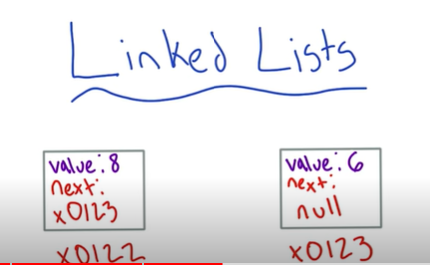 Linked Lists
value: 8
next:
x0123
x0122
value: 6
next:
null
x0123